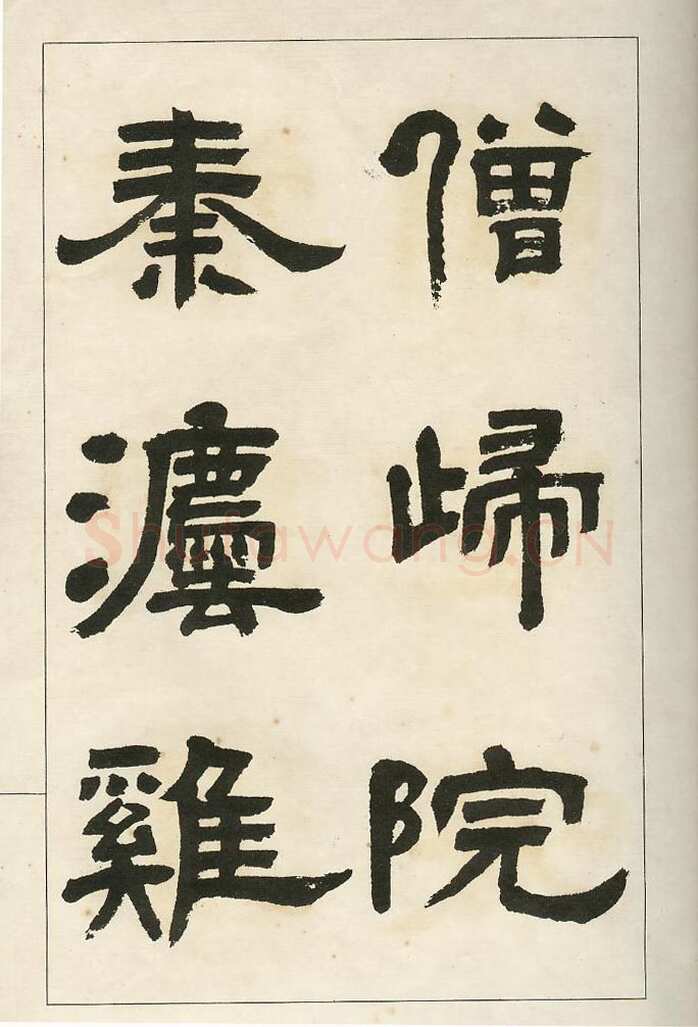 僧歸院
秦雞
Shufawang.CN